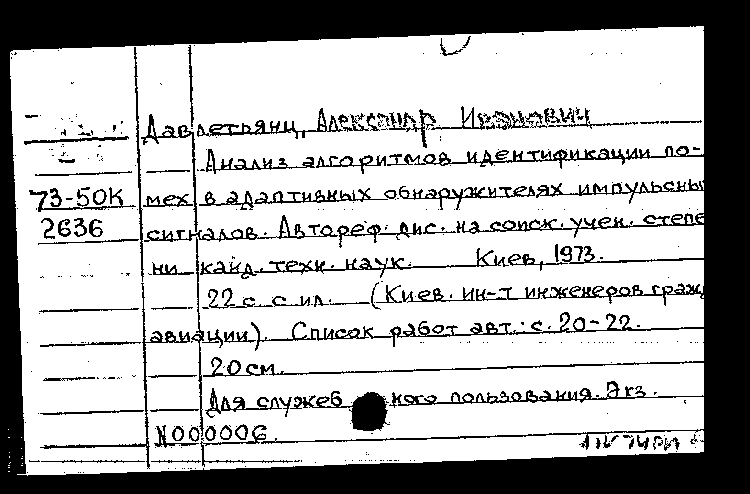 Давлетьянц, Александр Иванович
Анализ алгоритмов идентификации по-
73-50К мех в адаптивных обнаружителях импульсны
2636 сигналов. Автореф. дис. на соиск. учен. степе
ни канд. техн. наук. Киев, 1973.
22 с. с ил. (Киев. ин-т инженеров гражд
авиации). Список работ авт.: с. 20-22.
20 см.
Для служеб ного пользования. Экз.
N000006.